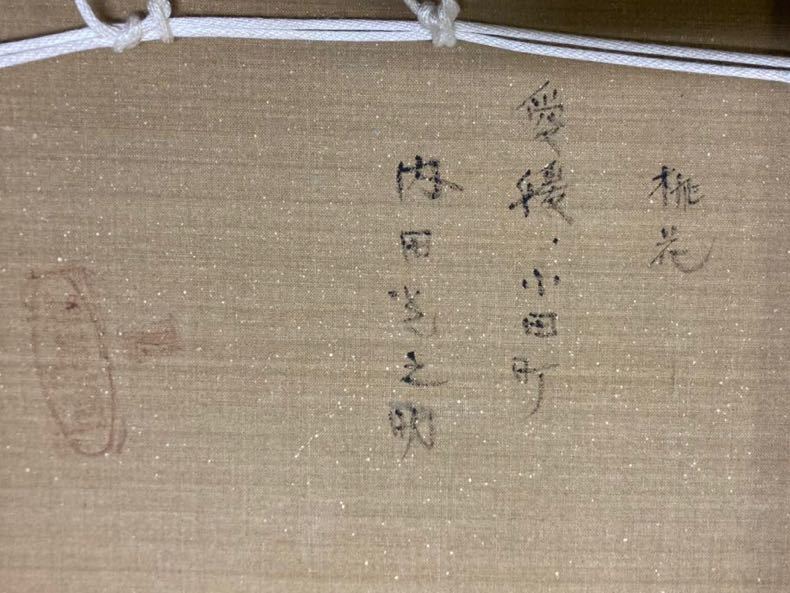 桃花
愛媛・小田町
内田光之明